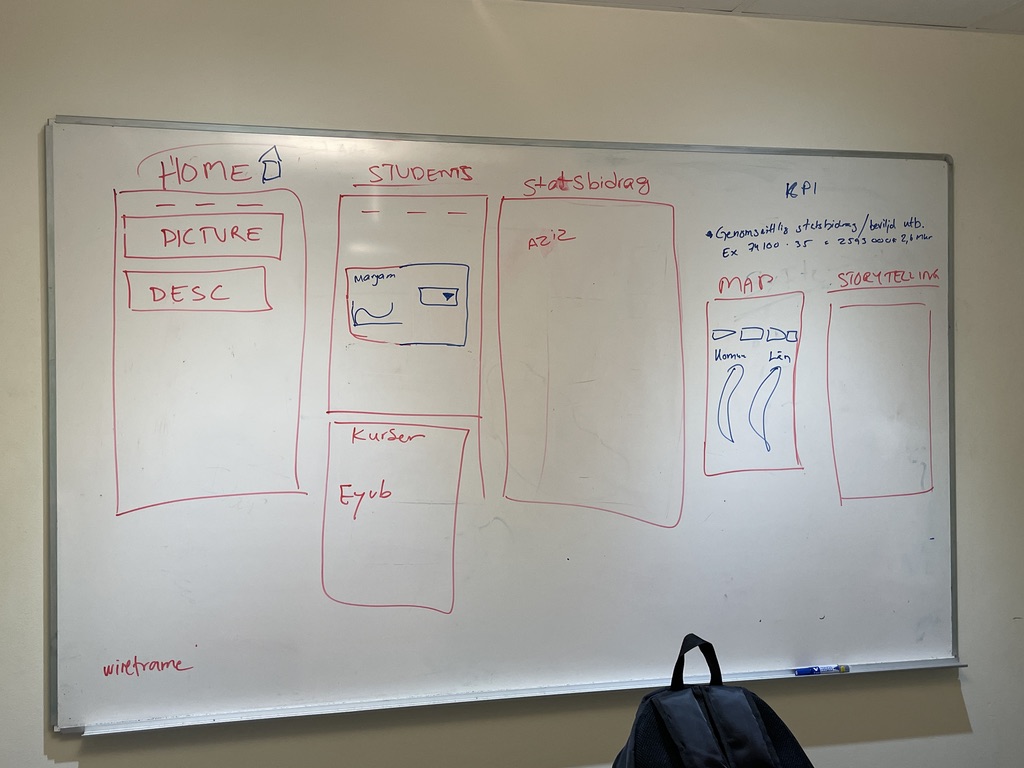 HOME
PICTURE
DESC
STUDENTS
Magam
Kurser
Eyub
Statsbidrag
AZIZ
KPI
Genomsnittlig statsbidrag / beviljd utb.
Ex 74100 · 35 = 2593000
MAP
Komun Län
STORYTELLING
wireframe